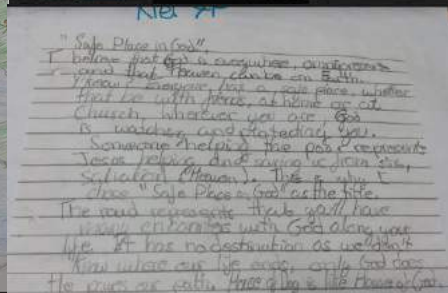 "Safe Place in God",
I believe that God is everywhere,
and that Heaven can be on Earth.
Everyone has a safe place, whether
that be with friends, at home or at
Church, wherever you are, God
is watching and protecting you.
Someone helping the poor represents
Jesus helping and saving us from sin,
Salvation (Heaven). This is why I
chose "Safe Place in God" as the title.
The road represents that you'll have
many encounters with God along your
life. It has no destination as we don't
know where our life ends, only God does.
He our path. House of is like House of God.